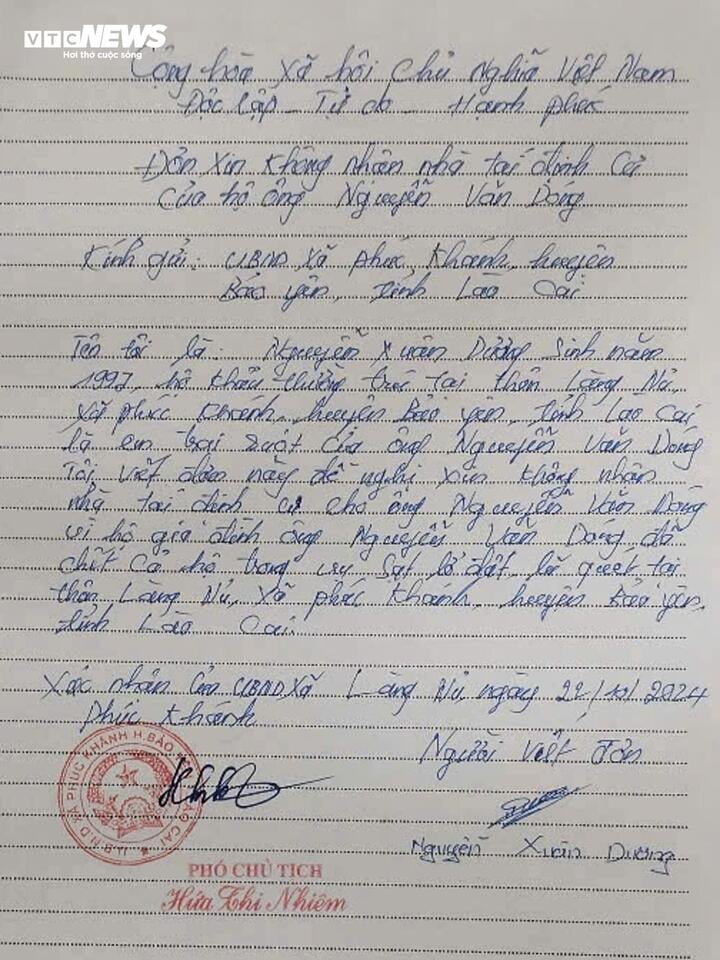 VTC NEWS
Hơi thở cuộc sống
Cộng hòa xã hội Chủ Nghĩa Việt Nam
Độc lập - Tự do - Hạnh phúc
Đơn xin không nhận nhà tái định cư
Của hộ ông Nguyễn Văn Dóng
Kính gửi: UBND xã phúc Khánh, huyện
Bảo yên, tỉnh Lào Cai
Tên tôi là: Nguyễn Xuân Dương Sinh năm
1997, hộ khẩu thường trú tại thôn Làng Nủ,
xã phúc Khánh, huyện Bảo yên, tỉnh Lào Cai
là em trai ruột của ông Nguyễn Văn Dóng
Tôi viết đơn này đề nghị xin không nhận
nhà tái định cư cho ông Nguyễn Văn Dóng
vì hộ gia đình ông Nguyễn Văn Dóng đã
chết cả hộ trong vụ sạt lở đất, lũ quét tại
thôn Làng Nủ, xã phúc Khánh, huyện Bảo yên,
tỉnh Lào Cai.
Xác nhận của UBND xã Làng Nủ, ngày 22/10/2024
phúc Khánh
Người viết đơn
U.B.N.D XÃ PHÚC KHÁNH H.BẢO LÀO CAI
Nguyễn Xuân Dương
PHÓ CHỦ TỊCH
Hứa Thị Nhiệm